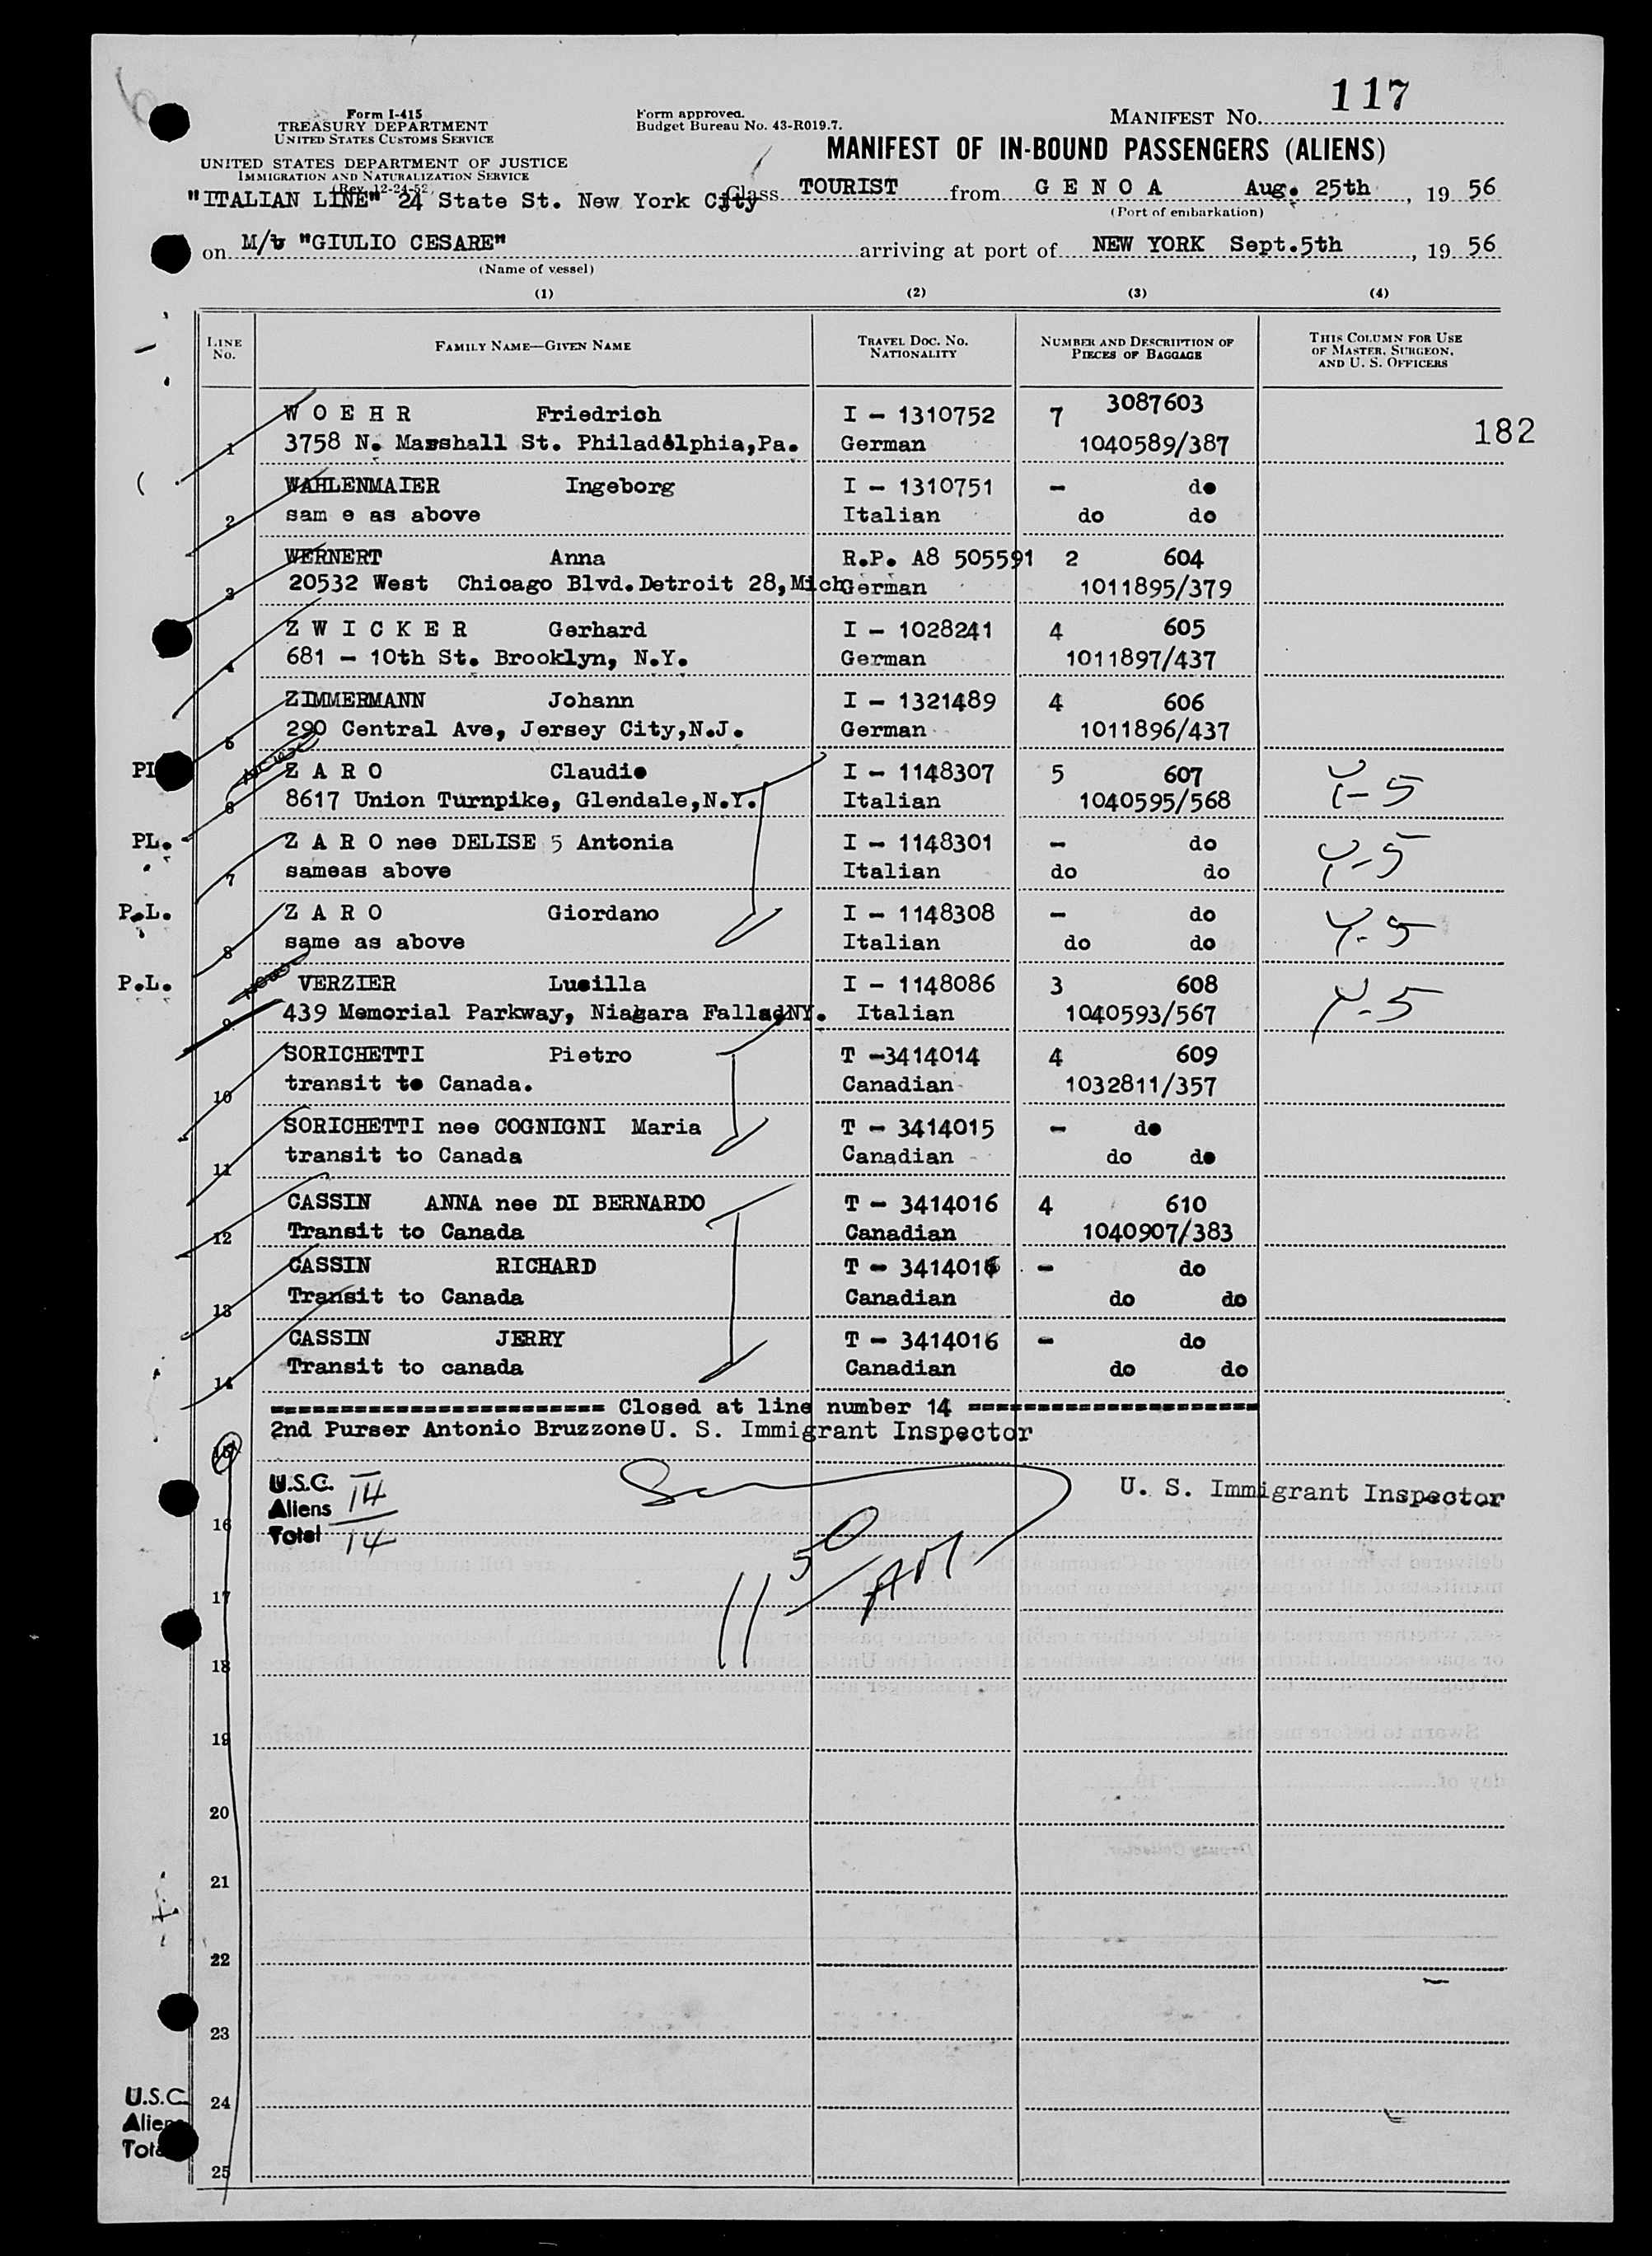 117
Form I-415
TREASURY DEPARTMENT
UNITED STATES CUSTOMS SERVICE
Form approved.
Budget Bureau No. 43-R019.7.
MANIFEST No.
UNITED STATES DEPARTMENT OF JUSTICE
IMMIGRATION AND NATURALIZATION SERVICE
(Rev. 12-24-52)
MANIFEST OF IN-BOUND PASSENGERS (ALIENS)
"ITALIAN LINE" 24 State St. New York City Class TOURIST from G E N O A Aug. 25th, 19 56
(Port of embarkation)
on M/v "GIULIO CESARE" arriving at port of NEW YORK Sept.5th, 19 56
(Name of vessel)
(1) (2) (3) (4)
LINE No. FAMILY NAME—GIVEN NAME TRAVEL DOC. No. NATIONALITY NUMBER AND DESCRIPTION OF PIECES OF BAGGAGE THIS COLUMN FOR USE OF MASTER, SURGEON, AND U. S. OFFICERS
W O E H R Friedrich I - 1310752 7 3087603
182
1 3758 N. Marshall St. Philadelphia,Pa. German 1040589/387
WAHLENMAIER Ingeborg I - 1310751 - do
2 sam e as above Italian do do
WERNERT Anna R.P. A8 505591 2 604
3 20532 West Chicago Blvd.Detroit 28,Mich German 1011895/379
Z W I C K E R Gerhard I - 1028241 4 605
4 681 - 10th St. Brooklyn, N.Y. German 1011897/437
ZIMMERMANN Johann I - 1321489 4 606
5 290 Central Ave, Jersey City,N.J. German 1011896/437
PL Z A R O Claudio I - 1148307 5 607 Y-5
6 8617 Union Turnpike, Glendale,N.Y. Italian 1040595/568
PL. Z A R O nee DELISE 5 Antonia I - 1148301 - do Y-5
7 sameas above Italian do do
P.L. Z A R O Giordano I - 1148308 - do Y-5
8 same as above Italian do do
P.L. VERZIER Lucilla I - 1148086 3 608 Y-5
9 439 Memorial Parkway, Niagara Falls NY. Italian 1040593/567
SORICHETTI Pietro T -3414014 4 609
10 transit to Canada. Canadian 1032811/357
SORICHETTI nee COGNIGNI Maria T - 3414015 - do
11 transit to Canada Canadian do do
CASSIN ANNA nee DI BERNARDO T - 3414016 4 610
12 Transit to Canada Canadian 1040907/383
CASSIN RICHARD T - 3414016 - do
13 Transit to Canada Canadian do do
CASSIN JERRY T - 3414016 - do
14 Transit to canada Canadian do do
======================== Closed at line number 14 =====================
2nd Purser Antonio Bruzzone U. S. Immigrant Inspector
15
U.S.C. —
U. S. Immigrant Inspector
Aliens 14
16 Total 14
11 50/AM
17
18
19
20
21
22
23
U.S.C. 24
Aliens
Total
25